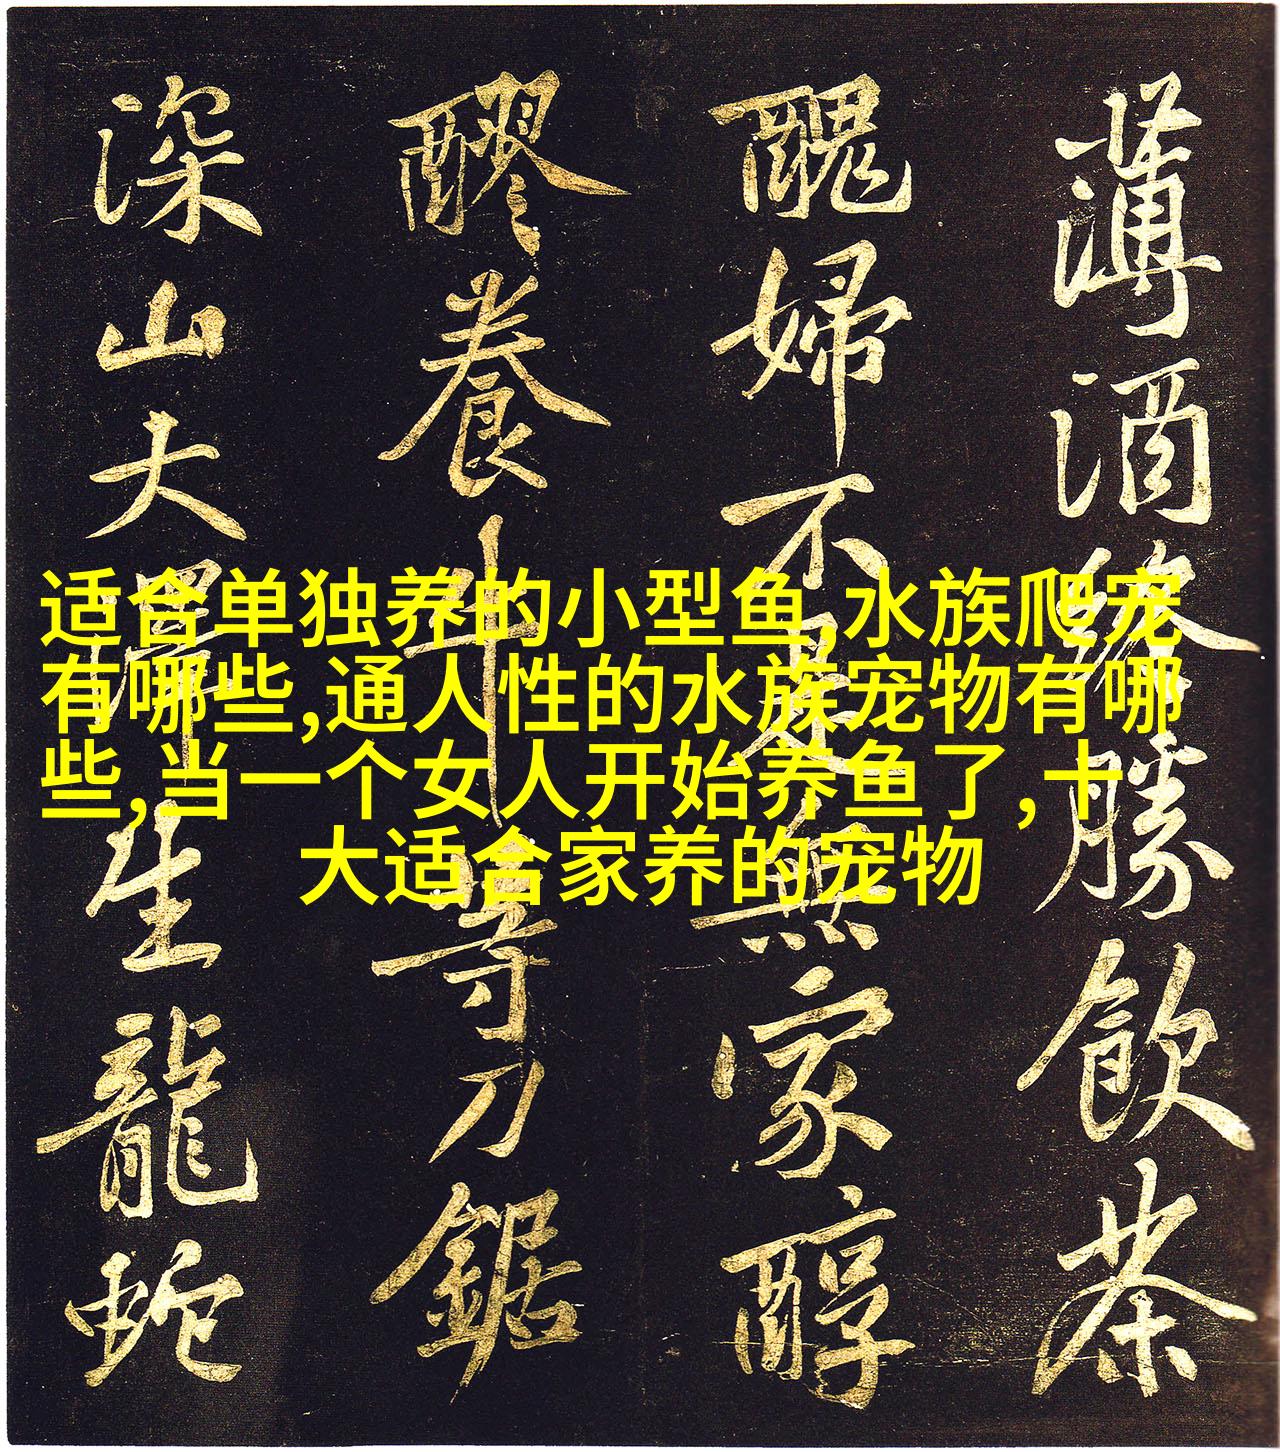 薄酒終勝飲茶
醜婦不是無家醇
醪養牛等刀鋸
深山大澤生龍蛇
适合单独养的小型鱼,水族爬宠
有哪些,通人性的水族宠物有哪
些,当一个女人开始养鱼了,十
大适合家养的宠物